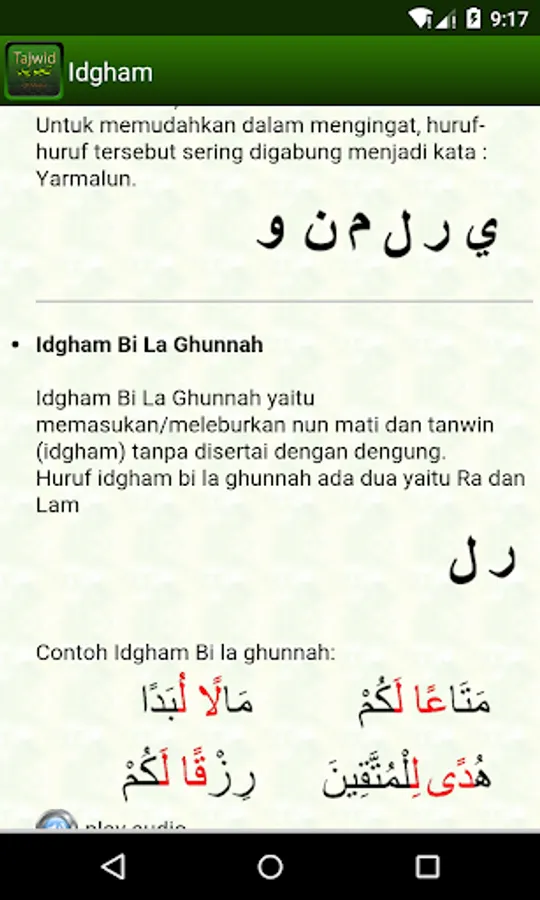 9:17
Tajwid
Idgham
Untuk memudahkan dalam mengingat, huruf-
huruf tersebut sering digabung menjadi kata :
Yarmalun.
ي ر ل م ن و
• Idgham Bi La Ghunnah
Idgham Bi La Ghunnah yaitu
memasukan/meleburkan nun mati dan tanwin
(idgham) tanpa disertai dengan dengung.
Huruf idgham bi la ghunnah ada dua yaitu Ra dan
Lam
ر ل
Contoh Idgham Bi la ghunnah:
مَتَاعًا لَكُمْ مَالًا لُبَدًا
هُدًى لِلْمُتَّقِينَ رِزْقًا لَكُمْ
play audio